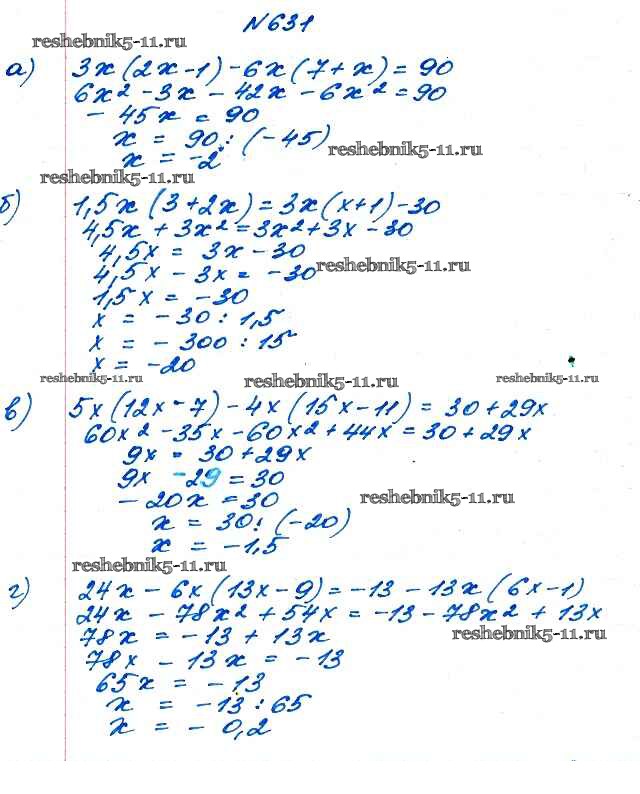 №631
reshebnik5-11.ru
а) 3x(2x-1)-6x(7+x)=90
6x²-3x-42x-6x²=90
-45x=90
x=90:(-45)
reshebnik5-11.ru
x=-2
reshebnik5-11.ru
б) 1,5x(3+2x)=3x(x+1)-30
4,5x+3x²=3x²+3x-30
4,5x=3x-30
reshebnik5-11.ru
4,5x-3x=-30
1,5x=-30
x=-30:1,5
x=-300:15
x=-20
reshebnik5-11.ru reshebnik5-11.ru reshebnik5-11.ru
в) 5x(12x-7)-4x(15x-11)=30+29x
60x²-35x-60x²+44x=30+29x
9x=30+29x
9x-29=30
-20x=30
reshebnik5-11.ru
x=30:(-20)
x=-1,5
reshebnik5-11.ru
г) 24x-6x(13x-9)=-13-13x(6x-1)
24x-78x²+54x=-13-78x²+13x
78x=-13+13x
reshebnik5-11.ru
78x-13x=-13
65x=-13
x=-13:65
x=-0,2